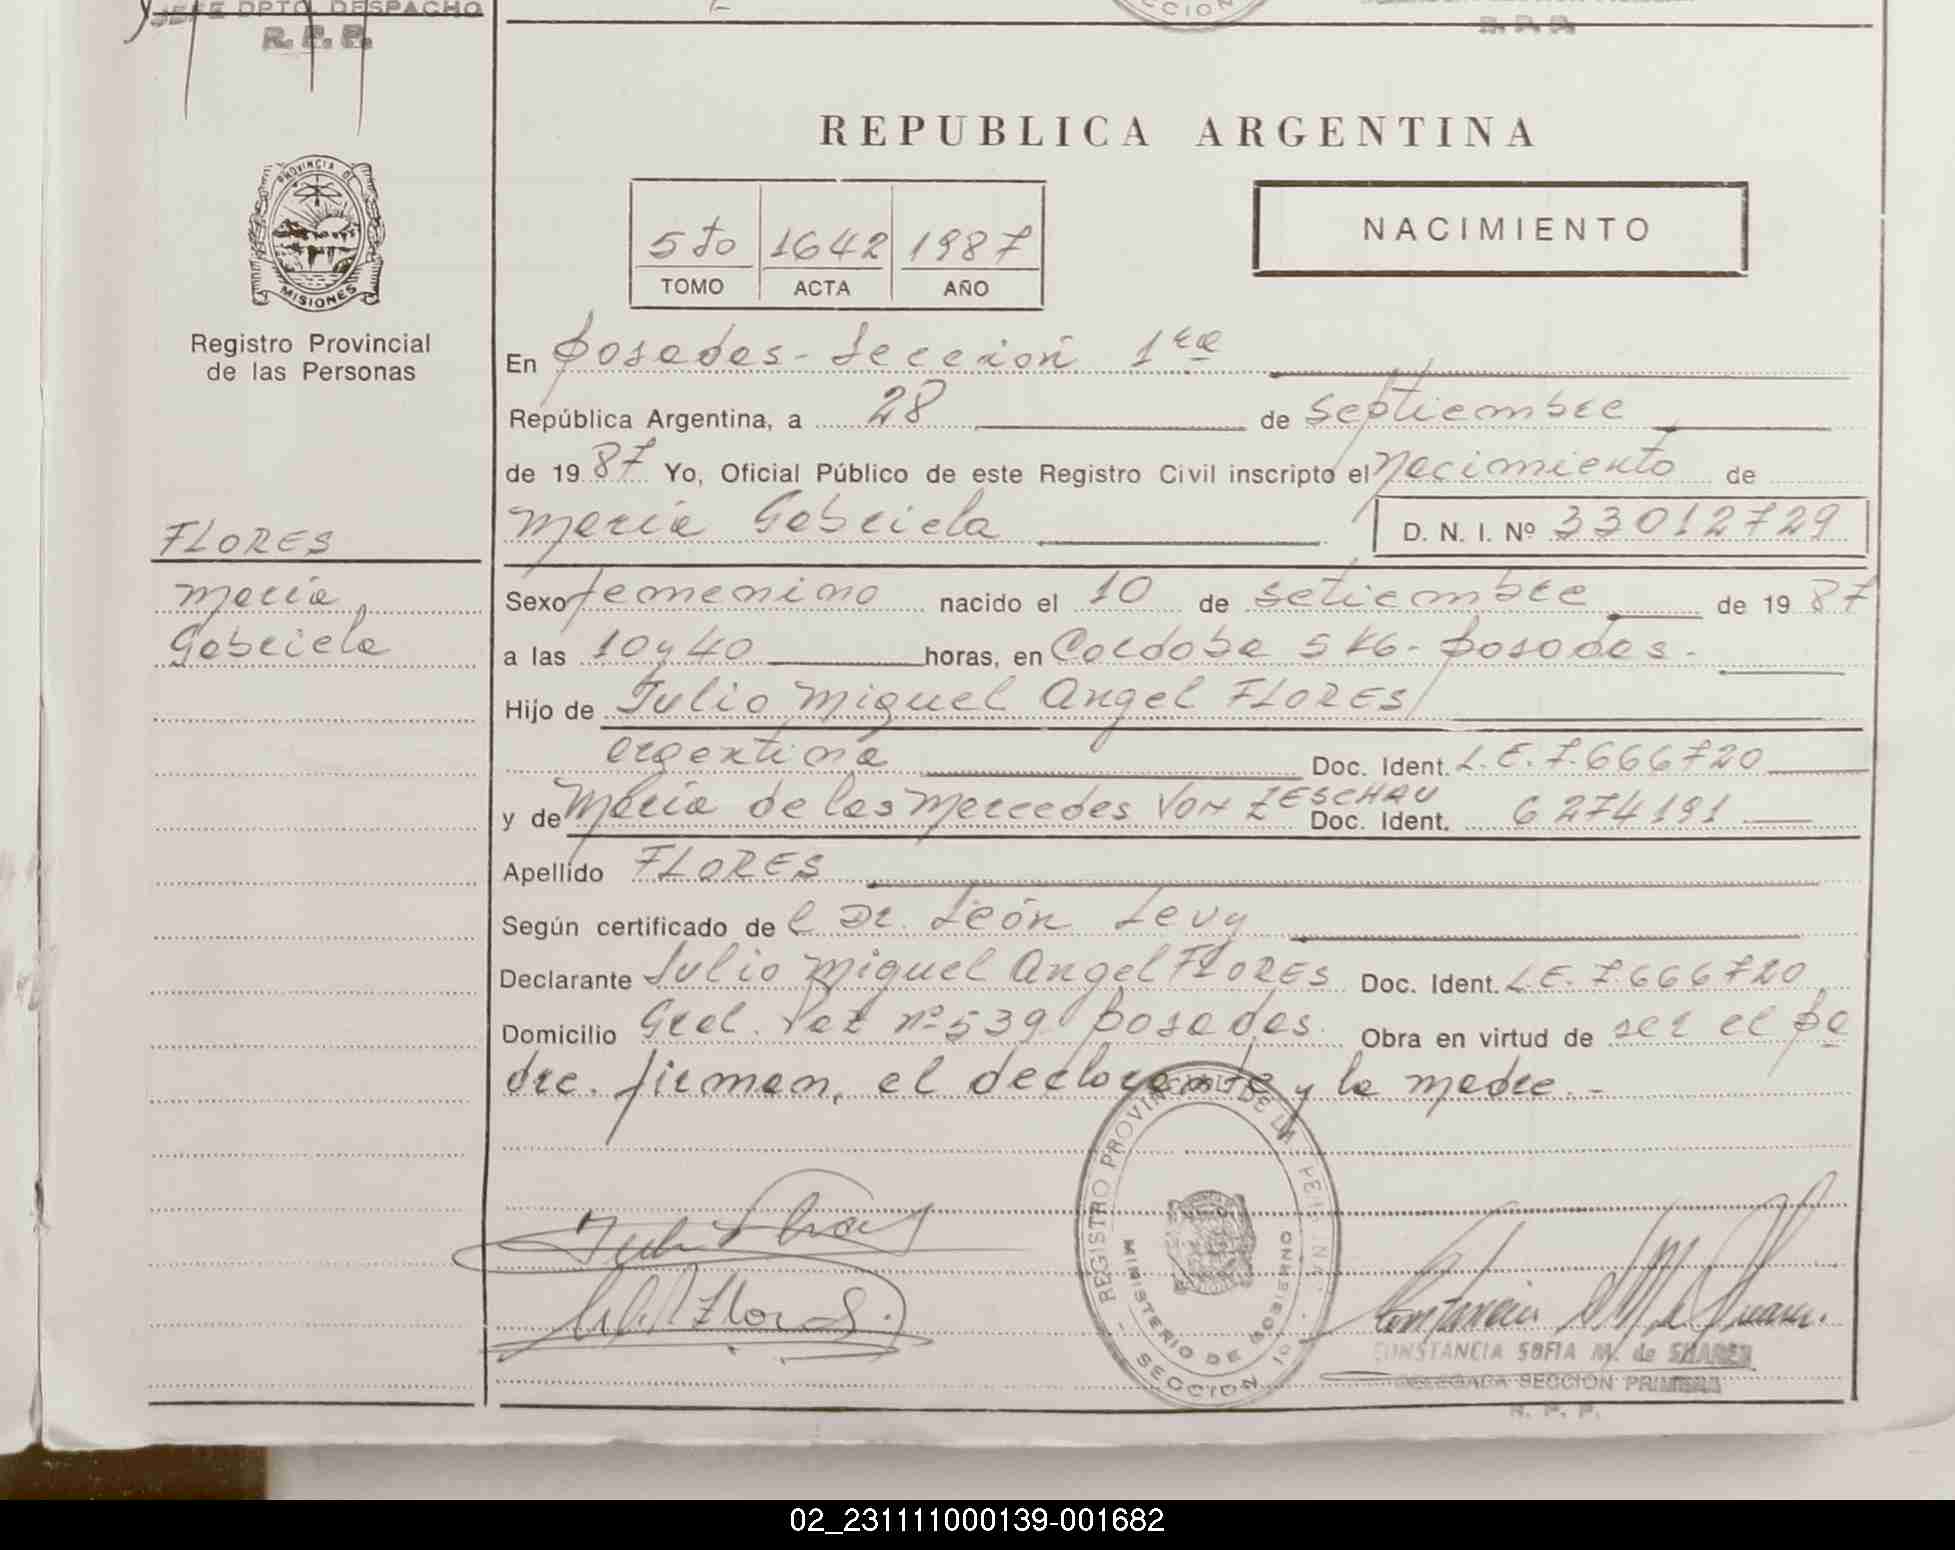 JEFE DPTO. DESPACHO
R. P. P.
R. P. P.
REPUBLICA ARGENTINA
PROVINCIA DE
MISIONES
Registro Provincial
de las Personas
5to 1642 1987
TOMO ACTA AÑO
NACIMIENTO
En Posadas - Sección 1ra
República Argentina, a 28 de septiembre
de 1987 Yo, Oficial Público de este Registro Civil inscripto el Nacimiento de
María Gabriela D. N. I. Nº 33012729
FLORES
María
Gabriela
Sexo femenino nacido el 10 de setiembre de 1987
a las 10 y 40 horas, en Córdoba 546 - Posadas -
Hijo de Julio Miguel Angel FLORES
argentina Doc. Ident. L.E. 7.666720
y de María de las Mercedes Von ZESCHAU Doc. Ident. 6274191
Apellido FLORES
Según certificado de l Dr. León Levy
Declarante Julio Miguel Angel FLORES Doc. Ident. L.E. 7.666720
Domicilio Gral. Paz nº 539 Posadas. Obra en virtud de ser el pa
dre. firman, el declarante y la madre. -
REGISTRO PROVINCIAL DE LAS PERSONAS
MINISTERIO DE GOBIERNO
SECCION 1º
CONSTANCIA SOFIA M. de SUAREZ
DELEGADA SECCION PRIMERA
R. P. P.
02_231111000139-001682